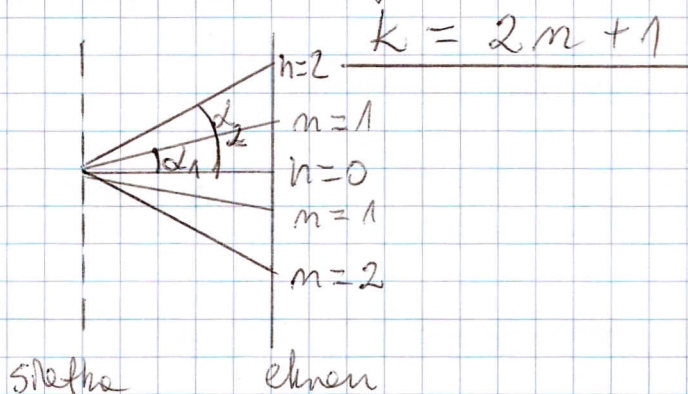 k = 2n + 1
n=2
n = 1
α2
α1
n=0
n = 1
n = 2
siatka
ekran